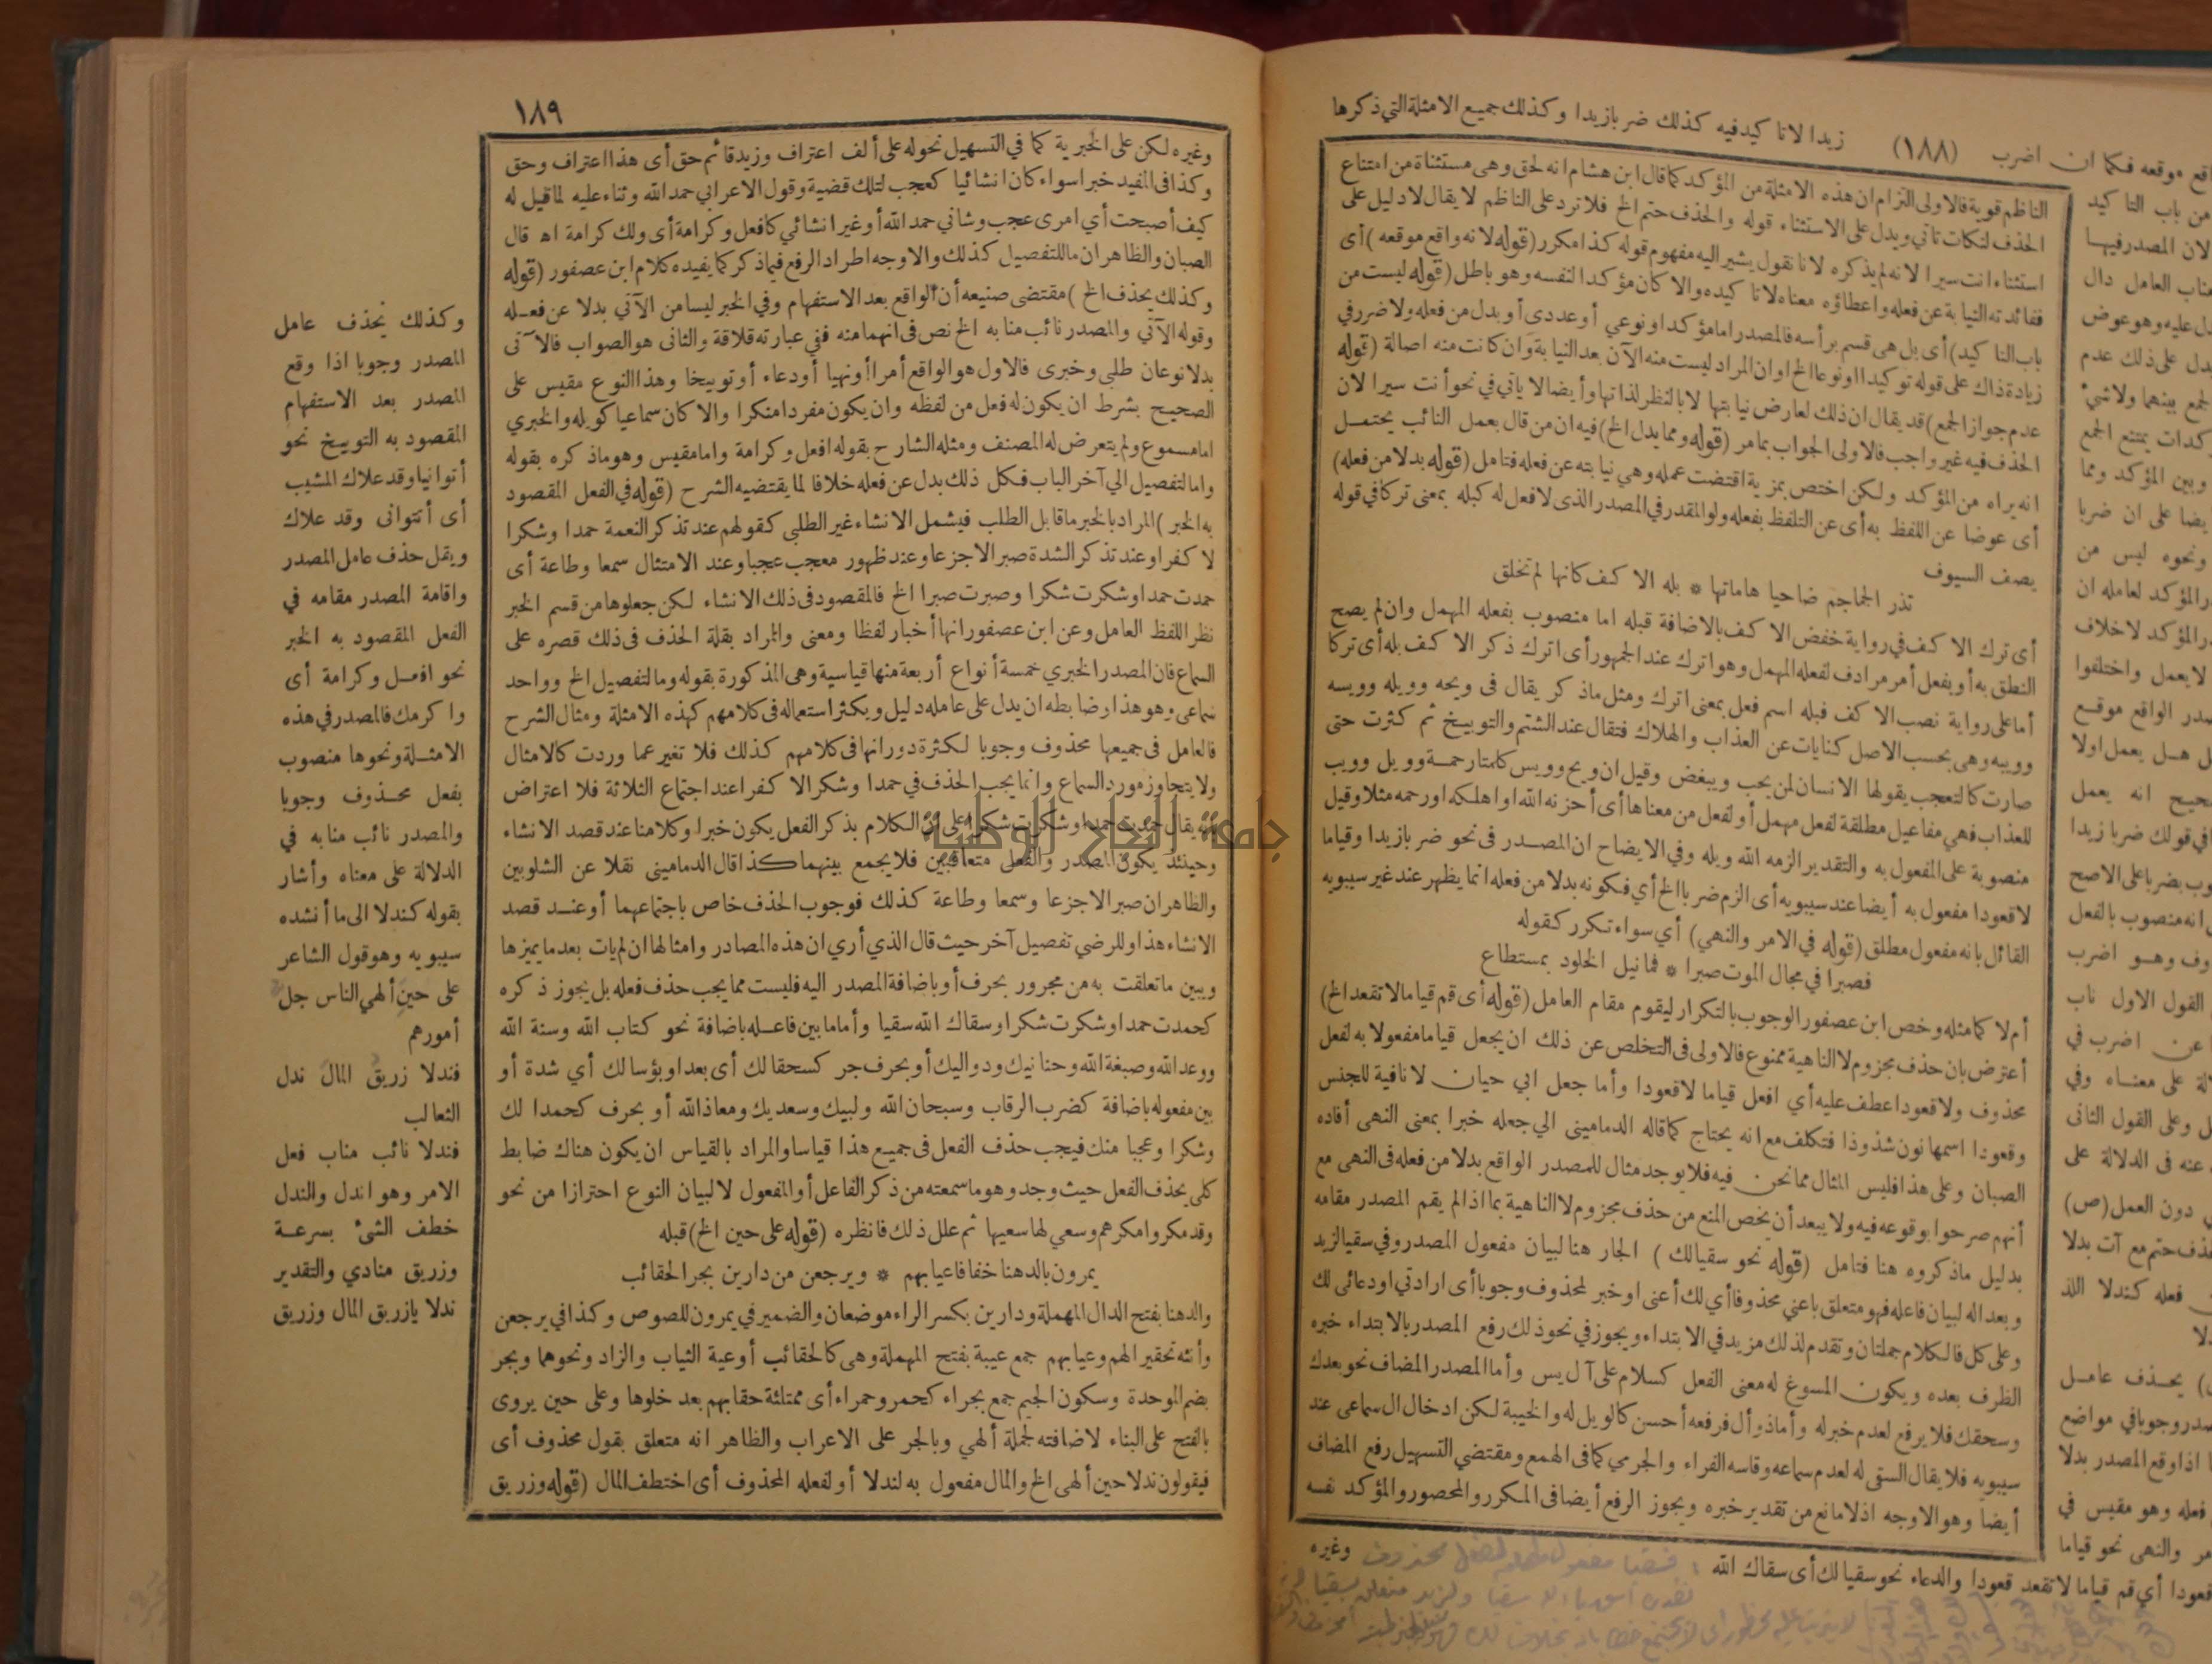 زيدا لانا كيد فيه كذلك ضربا زيدا وكذلك جميع الامثلة التي ذكرها
(١٨٨)
واقع موقعه فكما ان اضرب
الناظم قوية فالاولى التزام ان هذه الامثلة من المؤكد كما قال ابن هشام انه لحق وهى مستثناة من امتناع
الحذف لنكات تأتي ويدل على الاستثناء قوله والحذف حتم الخ فلا ترد على الناظم لا يقال لا دليل على
استثناء انت سيرا لانه لم يذكره لانا نقول يشير اليه مفهوم قوله كذا مكرر (قوله لانه واقع موقعه) أى
ففائدته النيابة عن فعله واعطاؤه معناه لا تاكيده والا كان مؤكدا لنفسه وهو باطل (قوله ليست من
باب التاكيد) أى بل هى قسم برأسه فالمصدر اما مؤكد او نوعي أو عددى أو بدل من فعله ولا ضرر في
زيادة ذاك على قوله توكيدا او نوعا الخ او ان المراد ليست منه الآن بعد النيابة وان كانت منه اصالة (قوله
عدم جواز الجمع) قد يقال ان ذلك لعارض نيابتها لا بالنظر لذاتها وأيضا لا ياتي في نحو أنت سيرا لان
الحذف فيه غير واجب فالاولى الجواب بما مر (قوله ومما يدل الخ) فيه ان من قال بعمل النائب يحتمل
انه يراه من المؤكد ولكن اختص بمزية اقتضت عمله وهي نيابته عن فعله فتامل (قوله بدلا من فعله)
أى عوضا عن اللفظ به أى عن التلفظ بفعله ولو المقدر في المصدر الذى لا فعل له كبله بمعنى تركا في قوله
يصف السيوف
تذر الجماجم ضاحيا هاماتها * بله الا كف كانها لم تخلق
أى ترك الا كف في رواية خفض الا كف بالاضافة قبله اما منصوب بفعله المهمل وان لم يصح
النطق به أو بفعل أمر مرادف لفعله المهمل وهو اترك عند الجمهور أى اترك ذكر الا كف بله أى تركا
أما على رواية نصب الا كف فبله اسم فعل بمعنى اترك ومثل ماذكر يقال فى ويحه وويله وويسه
وويبه وهى بحسب الاصل كنايات عن العذاب والهلاك فتقال عند الشتم والتوبيخ ثم كثرت حتى
صارت كالتعجب يقولها الانسان لمن يحب ويبغض وقيل ان ويح وويس كلمتا رحمة وويل وويب
للعذاب فهي مفاعيل مطلقة لفعل مهمل أو لفعل من معناها أى أحزنه الله او اهلكه او رحمه مثلا وقيل
منصوبة على المفعول به والتقدير الزمه الله ويله وفي الايضاح ان المصدر فى نحو ضربا زيدا وقياما
لا قعودا مفعول به أيضا عند سيبويه أى الزم ضربا الخ أي فكونه بدلا من فعله انما يظهر عند غير سيبويه
القائل بانه مفعول مطلق (قوله في الامر والنهي) أي سواء تكرر كقوله
فصبرا في مجال الموت صبرا * فما نيل الخلود بمستطاع
أم لا كما مثله وخص ابن عصفور الوجوب بالتكرار ليقوم مقام العامل (قوله أى قم قياما لا تقعد الخ)
أعترض بان حذف مجزوم لا الناهية ممنوع فالاولى فى التخلص عن ذلك ان يجعل قياما مفعولا به لفعل
محذوف ولا قعودا عطف عليه أي افعل قياما لا قعودا وأما جعل ابي حيان لا نافية للجنس
وقعودا اسمها نون شذوذا فتكلف مع انه يحتاج كما قاله الدماميني الي جعله خبرا بمعنى النهى أفاده
الصبان وعلى هذا فليس المثال مما نحن فيه فلا يوجد مثال للمصدر الواقع بدلا من فعله فى النهى مع
أنهم صرحوا بوقوعه فيه ولا يبعد أن يخص المنع من حذف مجزوم لا الناهية بما اذا لم يقم المصدر مقامه
بدليل ماذكروه هنا فتامل (قوله نحو سقيا لك) الجار هنا لبيان مفعول المصدر وفي سقيا لزيد
وبعدا له لبيان فاعله فهو متعلق باعني محذوفا أي لك أعنى او خبر لمحذوف وجوبا أى ارادتي او دعائى لك
وعلى كل فالكلام جملتان وتقدم لذلك مزيد في الابتداء ويجوز في نحو ذلك رفع المصدر بالابتداء خبره
الظرف بعده ويكون المسوغ له معنى الفعل كسلام على آل يس وأما المصدر المضاف نحو بعدك
وسحقك فلا يرفع لعدم خبر له وأما ذو أل فرفعه أحسن كالويل له والخيبة لكن ادخال ال سماعى عند
سيبويه فلا يقال السقى له لعدم سماعه وقاسه الفراء والجرمي كما فى الهمع ومقتضي التسهيل رفع المضاف
أيضا وهو الاوجه اذ لا مانع من تقدير خبره ويجوز الرفع أيضا فى المكرر والمحصور والمؤكد نفسه
وغيره
من باب التا كيد
لان المصدر فيها
مناب العامل دال
يدل عليه وهو عوض
يدل على ذلك عدم
الجمع بينهما ولا شئ
كدات يمتنع الجمع
وبين المؤكد ومما
يضا على ان ضربا
ونحوه ليس من
المؤكد لعامله ان
المؤكد لا خلاف
لا يعمل واختلفوا
صدر الواقع موقع
هل يعمل اولا
صحيح انه يعمل
في قولك ضربا زيدا
بضربا على الاصح
انه منصوب بالفعل
وهو اضرب
القول الاول ناب
عن اضرب في
لة على معناه وفي
وعلى القول الثانى
عنه فى الدلالة على
دون العمل (ص)
حذف حتم مع آت بدلا
فعله كندلا اللذ
يحذف عامل
صدر وجوبا في مواضع
اذا وقع المصدر بدلا
فعله وهو مقيس في
مر والنهى نحو قياما
قعودا أي قم قياما لا تقعد قعودا والدعاء نحو سقيا لك أى سقاك الله
١٨٩
وغيره لكن على الخبرية كما في التسهيل نحو له على ألف اعتراف وزيد قائم حق أى هذا اعتراف وحق
وكذا فى المفيد خبرا سواء كان انشائيا كعجب لتلك قضية وقول الاعرابي حمد الله وثناء عليه لما قيل له
كيف أصبحت أي امرى عجب وشاني حمد الله أو غير انشائي كافعل وكرامة أى ولك كرامة اه قال
الصبان والظاهر ان ما للتفصيل كذلك والاوجه اطراد الرفع فيما ذكر كما يفيده كلام ابن عصفور (قوله
وكذلك يحذف الخ) مقتضى صنيعه أن الواقع بعد الاستفهام وفي الخبر ليسا من الآتي بدلا عن فعله
وقوله الآتي والمصدر نائب منابه الخ نص فى انهما منه ففي عبارته قلاقة والثانى هو الصواب فالآتى
بدلا نوعان طلبي وخبرى فالاول هو الواقع أمرا أو نهيا أو دعاء أو توبيخا وهذا النوع مقيس على
الصحيح بشرط ان يكون له فعل من لفظه وان يكون مفردا منكرا والا كان سماعيا كويله والخبري
اما مسموع ولم يتعرض له المصنف ومثله الشارح بقوله افعل وكرامة واما مقيس وهو ماذكره بقوله
واما لتفصيل الي آخر الباب فكل ذلك بدل عن فعله خلافا لما يقتضيه الشرح (قوله في الفعل المقصود
به الخبر) المراد بالخبر ما قابل الطلب فيشمل الانشاء غير الطلبي كقولهم عند تذكر النعمة حمدا وشكرا
لا كفرا وعند تذكر الشدة صبرا لا جزعا وعند ظهور معجب عجبا وعند الامتثال سمعا وطاعة أى
حمدت حمدا وشكرت شكرا وصبرت صبرا الخ فالمقصود فى ذلك الانشاء لكن جعلوها من قسم الخبر
نظرا للفظ العامل وعن ابن عصفور انها أخبار لفظا ومعنى والمراد بقلة الحذف فى ذلك قصره على
السماع فان المصدر الخبري خمسة أنواع أربعة منها قياسية وهى المذكورة بقوله وما لتفصيل الخ وواحد
سماعى وهو هذا وضابطه ان يدل على عامله دليل ويكثر استعماله فى كلامهم كهذه الامثلة ومثال الشرح
فالعامل فى جميعها محذوف وجوبا لكثرة دورانها فى كلامهم كذلك فلا تغير عما وردت كالامثال
ولا يتجاوز مورد السماع وانما يجب الحذف في حمدا وشكرا لا كفرا عند اجتماع الثلاثة فلا اعتراض
بانه يقال حمدت حمدا وشكرت شكرا على ان الكلام بذكر الفعل يكون خبرا وكلامنا عند قصد الانشاء
وحينئذ يكون المصدر والفعل متعاقبين فلا يجمع بينهما كذا قال الدماميني نقلا عن الشلوبين
والظاهر ان صبرا لا جزعا وسمعا وطاعة كذلك فوجوب الحذف خاص باجتماعهما أو عند قصد
الانشاء هذا وللرضي تفصيل آخر حيث قال الذي أري ان هذه المصادر وامثالها ان لم يات بعدما يميزها
ويبين ما تعلقت به من مجرور بحرف أو باضافة المصدر اليه فليست مما يجب حذف فعله بل يجوز ذكره
كحمدت حمدا وشكرت شكرا وسقاك الله سقيا وأما ما بين فاعله باضافة نحو كتاب الله وسنة الله
ووعد الله وصبغة الله وحنانيك ودواليك أو بحرف جر كسحقا لك أى بعدا وبؤسا لك أي شدة أو
بين مفعوله باضافة كضرب الرقاب وسبحان الله ولبيك وسعديك ومعاذ الله أو بحرف كحمدا لك
وشكرا وعجبا منك فيجب حذف الفعل فى جميع هذا قياسا والمراد بالقياس ان يكون هناك ضابط
كلى يحذف الفعل حيث وجد وهو ما سمعته من ذكر الفاعل أو المفعول لا لبيان النوع احترازا من نحو
وقد مكروا مكرهم وسعي لها سعيها ثم علل ذلك فانظره (قوله على حين الخ) قبله
يمرون بالدهنا خفافا عيابهم * ويرجعن من دارين بجر الحقائب
والدهنا بفتح الدال المهملة ودارين بكسر الراء موضعان والضمير في يمرون للصوص وكذا في يرجعن
وأنثه تحقيرا لهم وعيابهم جمع عيبة بفتح المهملة وهى كالحقائب أوعية الثياب والزاد ونحوهما وبجر
بضم الموحدة وسكون الجيم جمع بجراء كحمر وحمراء أى ممتلئة حقائبهم بعد خلوها وعلى حين يروى
بالفتح على البناء لاضافته لجملة ألهي وبالجر على الاعراب والظاهر انه متعلق بقول محذوف أى
فيقولون ندلا حين ألهى الخ والمال مفعول به لندلا أو لفعله المحذوف أى اختطف المال (قوله وزريق
وكذلك يحذف عامل
المصدر وجوبا اذا وقع
المصدر بعد الاستفهام
المقصود به التوبيخ نحو
أتوانيا وقد علاك المشيب
أى أتتوانى وقد علاك
ويقل حذف عامل المصدر
واقامة المصدر مقامه في
الفعل المقصود به الخبر
نحو افعل وكرامة أى
وا كرمك فالمصدر في هذه
الامثلة ونحوها منصوب
بفعل محذوف وجوبا
والمصدر نائب منابه في
الدلالة على معناه وأشار
بقوله كندلا الى ما أنشده
سيبويه وهو قول الشاعر
على حين ألهي الناس جل
أمورهم
فندلا زريق المال ندل
الثعالب
فندلا نائب مناب فعل
الامر وهو اندل والندل
خطف الشئ بسرعة
وزريق منادي والتقدير
ندلا يازريق المال وزريق
جامعة النجاح الوطنية